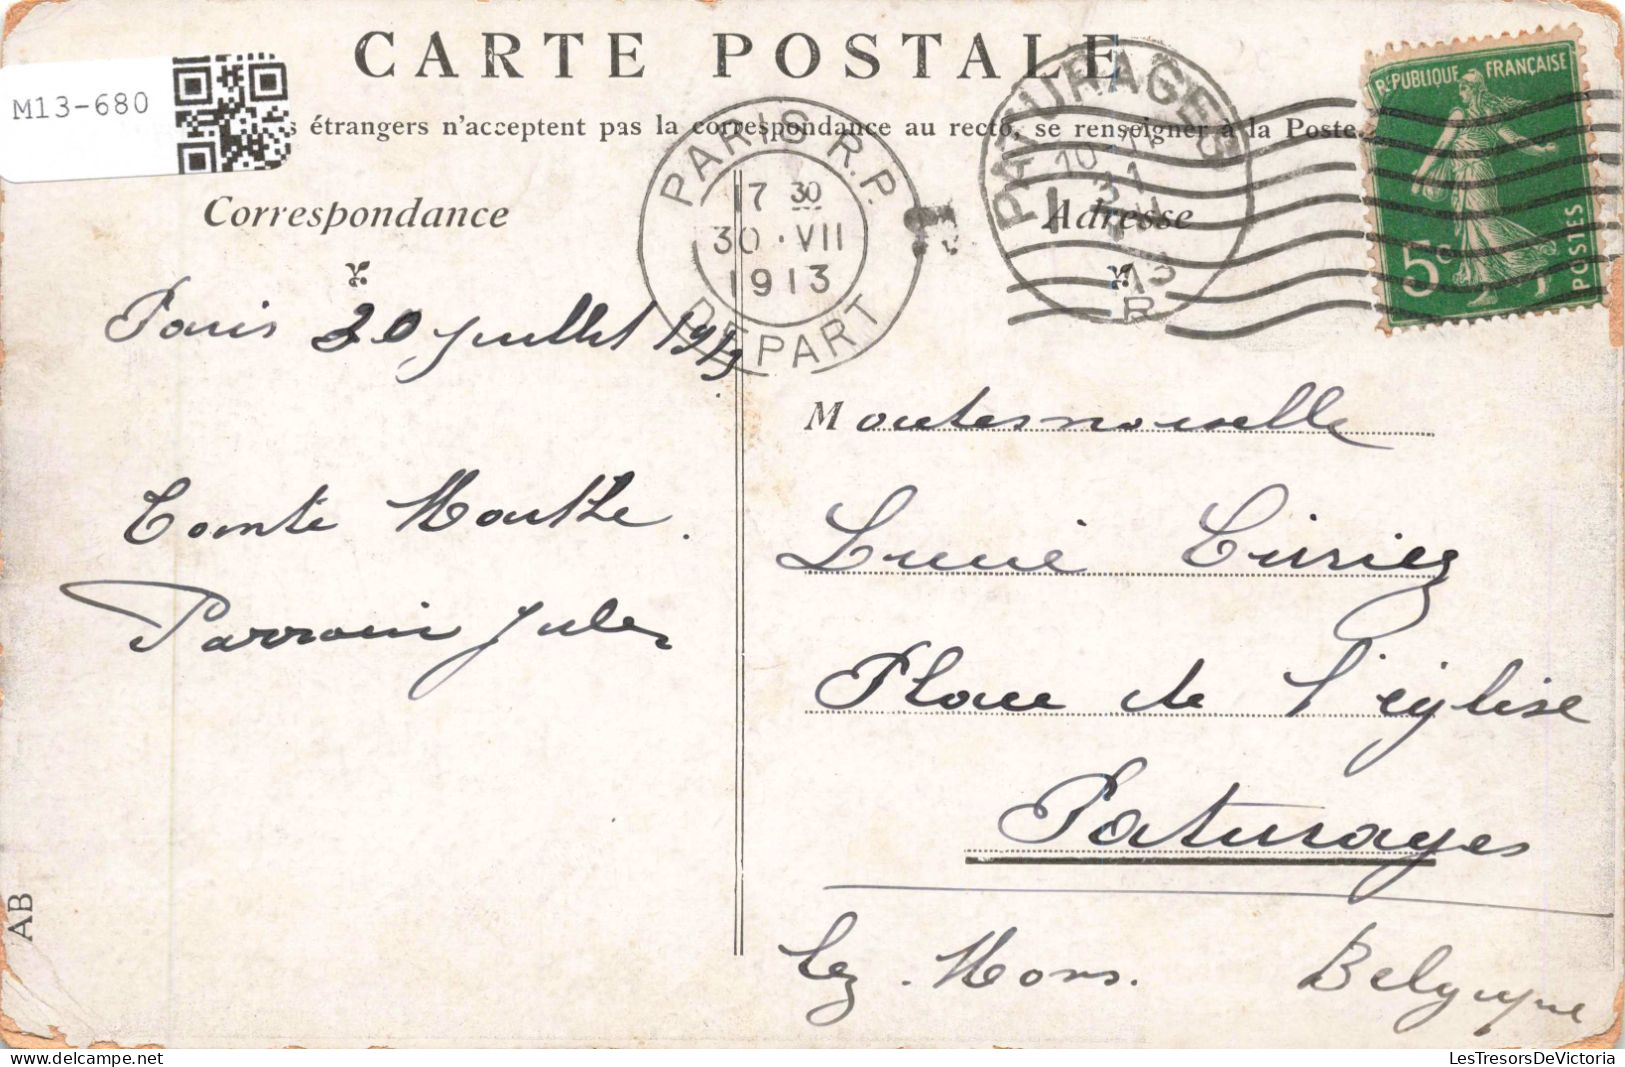 CARTE POSTALE
M13-680
s étrangers n'acceptent pas la correspondance au recto, se renseigner à la Poste.
Correspondance
Adresse
PARIS R.P.
17 30
30 · VII
1913
DEPART
PATURAGES
10-11
31
VII
13
B
REPUBLIQUE FRANÇAISE
5c
POSTES
Paris 30 juillet 1913
Mademoiselle
Tante Marthe
Parrain Jules
Lucie Curiez
Place de l'église
Paturages
Lez-Mons. Belgique
AB
LesTresorsDeVictoria